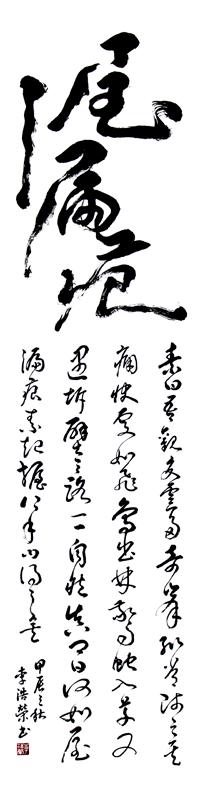 屋漏痕
素曰吾觀夏雲多奇峯輒嘗師之其
痛快處如飛鳥出林驚蛇入草又
遇坼壁之路一一自然真卿曰何如屋
漏痕素起握公手曰得之矣
甲辰之秋
李浩榮書